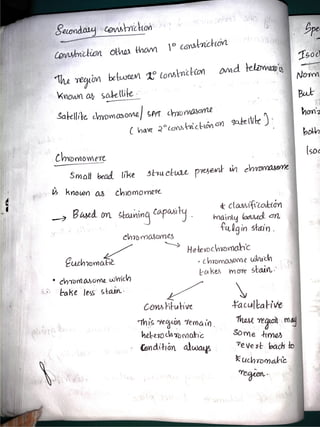 Secondary constriction
Constriction other than 1° constriction
The region between 2° constriction and telomere is
known as satellite.
Satellite chromosome / SAT chromosome
(have 2° constriction on satellite).
Chromomere
Small bead like structure present in chromosome
is known as chromomere
→ Based on staining capasity.
* classification
mainly based on
fulgin stain.
chromosomes
Euchromatic
• chromosome which
take less stain.
Heterochromatic
• chromosome which
takes more stain.
Constitutive
This region remain
heterochromatic
condition always
Facultative
These region may
some times
revert back to
Euchromatic
region.
Spe
Isoc
Norm
But
horiz
both
Isoc